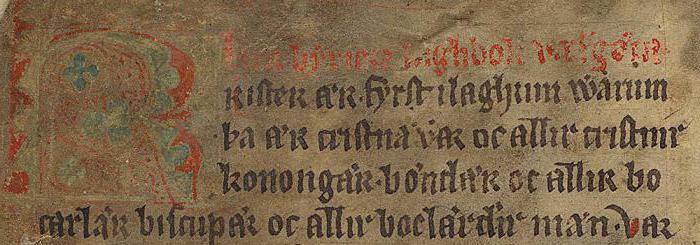 Hær byriarz laghbok væsgøta
Krister ær fyrst i laghum warum
þa ær cristna var oc allir cristnir
konongær. bøndær oc allir bo
carlær biscupær oc allir boclærdir mæn. Var